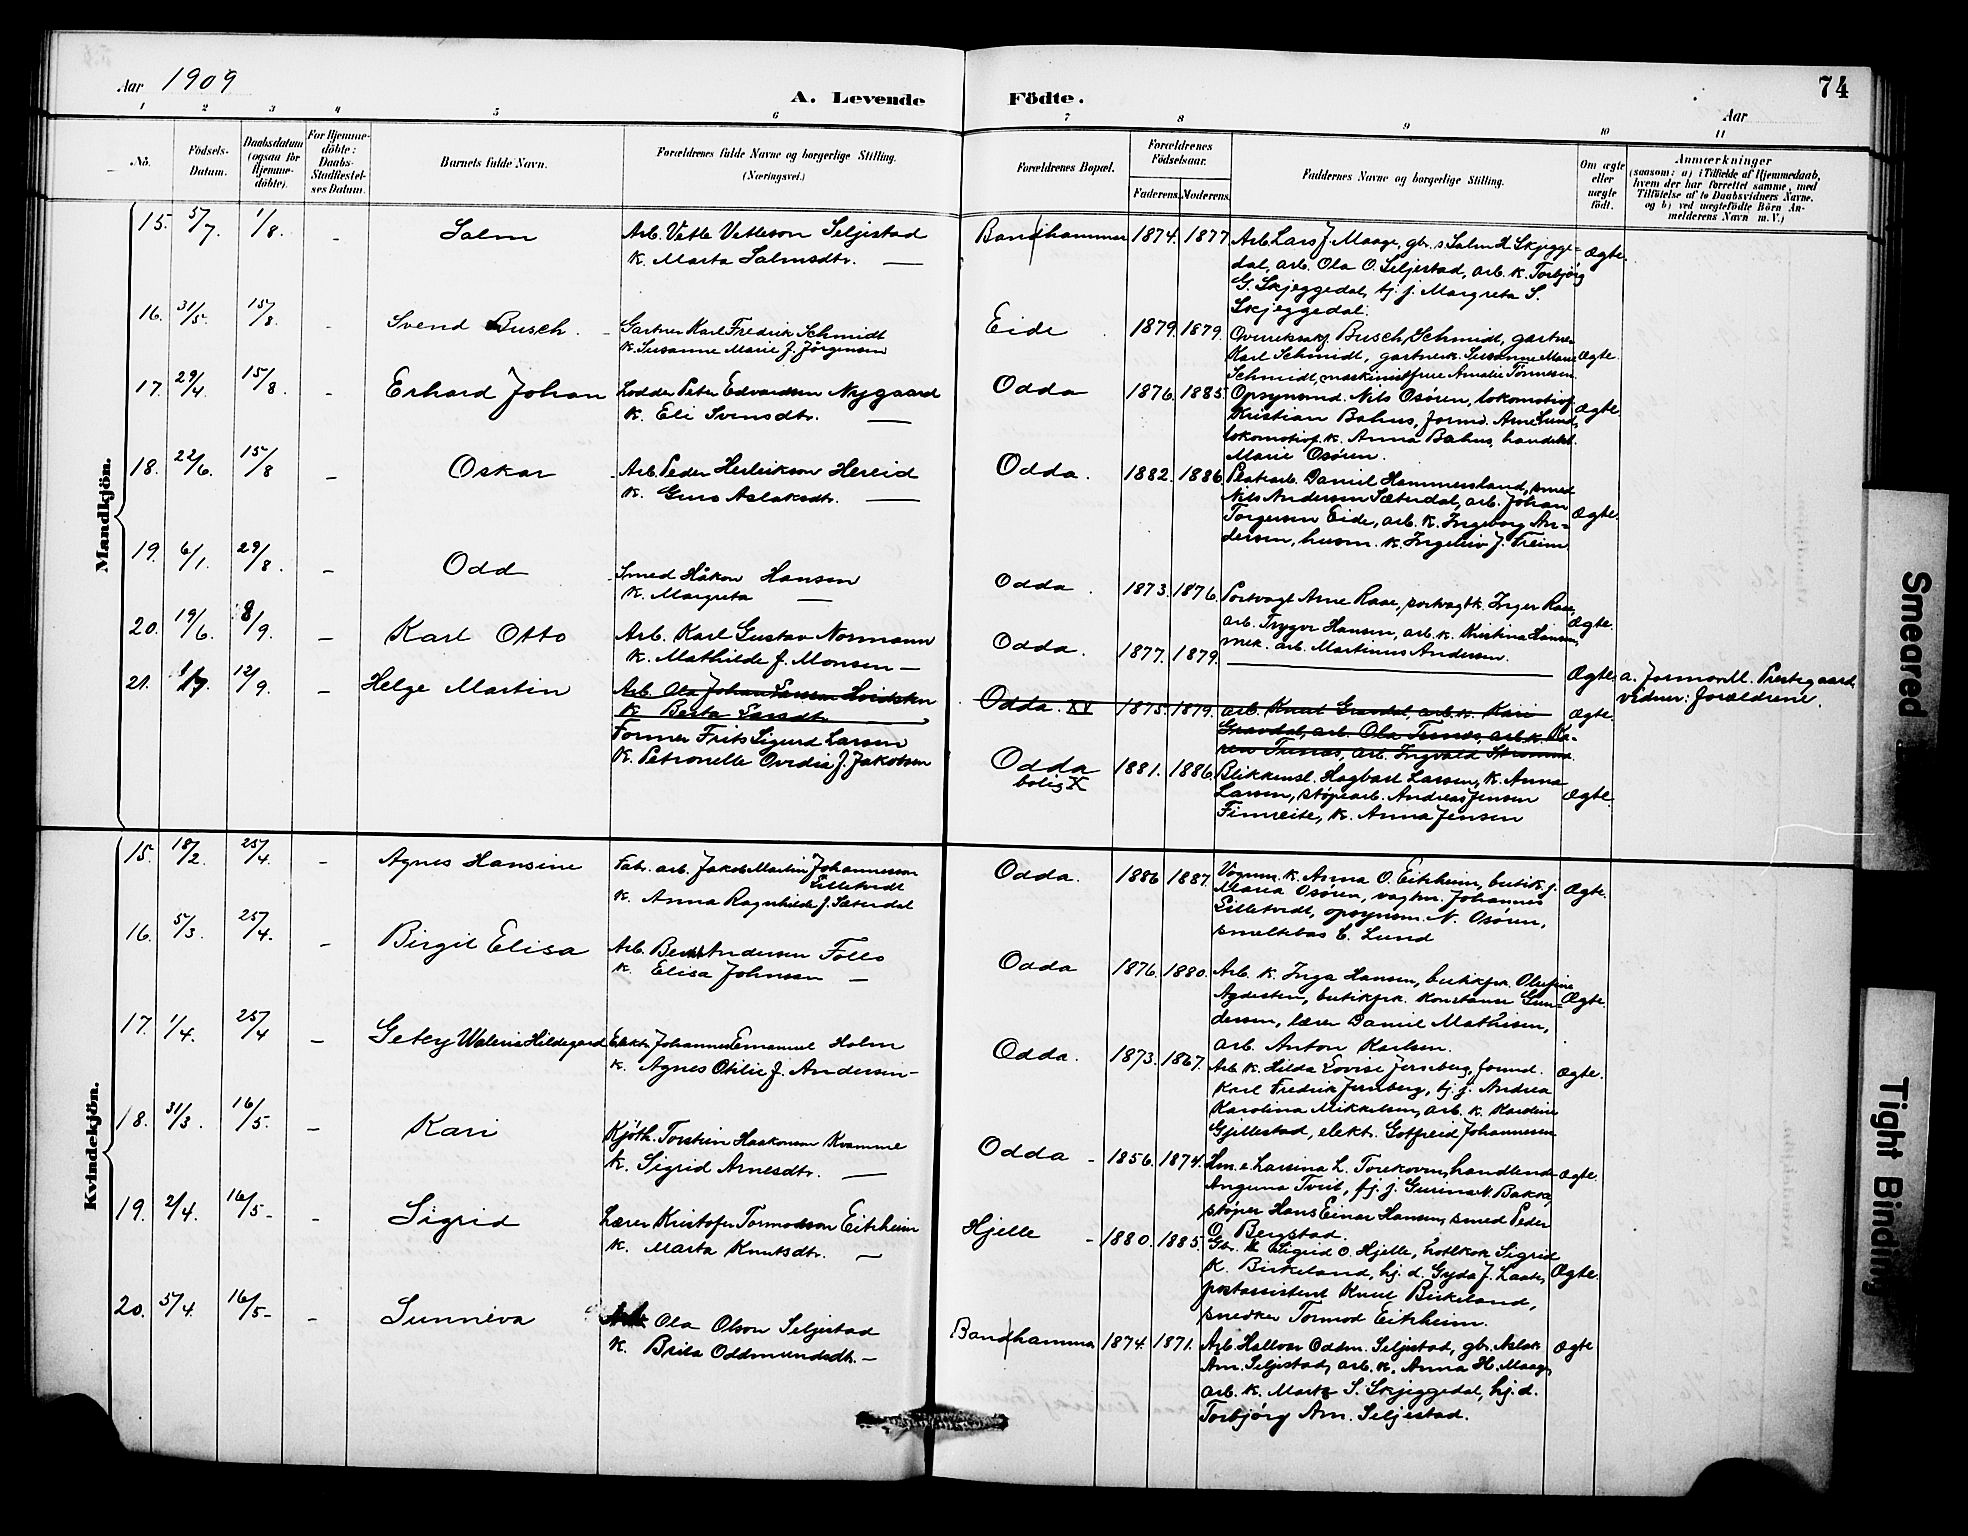 Aar 1909
A. Levende Födte.
74
Aar
1 2 3 4 5 6 7 8 9 10 11
No.
Födsels-Datum.
Daabsdatum (ogsaa for Hjemme-döbte).
For Hjemme-döbte: Daabs-Stadfæstel-ses Datum.
Barnets fulde Navn.
Forældrenes fulde Navne og borgerlige Stilling. (Næringsvei.)
Forældrenes Bopæl.
Forældrenes Födselsaar.
Faderens. Moderens.
Faddernes Navne og borgerlige Stilling.
Om ægte eller uægte födt.
Anmærkninger
(saasom: a) i Tilfælde af Hjemmedaab,
hvem der har forrettet samme, med
Tilföielse af to Daabsvidners Navne.
og b) ved uægtefödte Börn An-
melderens Navn m. V.)
Mandkjön.
15. 5/7. 1/8. - Salm
Arb. Vetle Vetleson Seljestad
K. Marta Salmsdtr. —
Bandhammer 1874. 1877.
Arb. Lars J. Maage, gbr. s. Salm H. Skjegge-
dal, arb. Ola O. Seljestad, arb. k. Torbjørg
G. Skjeggedal, tj. j. Margreta S.
Skjeggedal.
Ægte.
16. 31/5. 15/8. - Svend Busch.
Gartner Karl Fredrik Schmidt
K. Susanne Marie J. Jörgensen
Eide 1879. 1879.
Busch Schmidt, gartner
Karl Schmidt, gartnerk. Susanne Marie
Schmidt, maskinistfrue Amalie Tönnesen.
Ægte.
17. 29/4. 15/8. - Erhard Johan
Lodder Peter Edvardsen Nygaard
K. Eli Svensdtr. —
Odda 1876. 1885.
Opsynsmd. Nils Osören, lokomotivf.
Kristian Bahus, formd. Arne Lund,
lokomotivf. k. Anna Bahus,
Marie Osören.
Ægte.
18. 22/6. 15/8 - Oskar
Arb. Peder Herleikson Hereid
K. Guro Aslaksdt. —
Odda. 1882. 1886.
Daniel Hammersland, smed
Nils Andersen Sæterdal, arb. Johan
Torgersen Eide, arb. k. Ingeborg An-
dersen, husm. k. Ingeleiv J. Freim
Ægte.
19. 6/1. 29/8. - Odd
Smed Håkon Hansen
K. Margreta —
Odda. 1873. 1876.
Portvagt Arne Raae, portvagtk. Inger Raae,
arb. Trygve Hansen, arb. k. Kristina Hansen,
mek. arb. Martinus Andersen.
Ægte.
20. 19/6. 8/9. - Karl Otto
Arb. Karl Gustav Normann
K. Mathilde J. Monsen —
Odda. 1877. 1879.
Ægte.
a. Jormor M. Prestegaard
vidner: forældrene.
21. 12/9. - Helge Martin
Arb. Ola Johan Larsen
K. Berta Larsdt.
Odda. XV 1875. 1879.
arb. Knut Gravdal, arb. k. Kari
Gravdal, arb. Ola Tesnes, arb. k. Ka-
ren Tesnes, arb. Ingvald Strömme.
Ægte.
Former Frits Sigurd Larsen
K. Petronelle Ovedia J. Jakobsen
Odda
bolig X
1881. 1886.
Blikkensl. Hagbart Larsen, k. Anna
Larsen, støpearb. Andreas Jensen
Finneite, k. Anna Jensen
Ægte.
Kvindekjön.
15. 18/2. 25/4. - Agnes Hansine
Fabr. arb. Jakob Martin Johannessen
Lilletvedt
K. Anna Ragnhilde J. Sæterdal
Odda. 1886 1887.
Vognm. k. Anna O. Eitrheim, butik j.
Maria Osören, vagtm. Johannes
Lilletvedt, opsynsm. N. Osören,
smeltebas E. Lund
Ægte.
16. 5/3. 25/4. - Birgit Elisa
Arb. Bernt Andersen Follo
K. Elisa Johnsen —
Odda 1876. 1880.
Arb. k. Inga Hansen, butikfrk. Olefine
Agdesten, butikfrk. Konstanse Gun-
dersen, lærer Daniel Mathisen,
arb. Anton Karlsen.
Ægte.
17. 1/4. 25/4 - Getey Waleria Hildegard
Elektr. Johannes Emanuel Holm
K. Agnes Otilie J. Andersen —
Odda. 1873. 1867.
Arb. k. Hilda Lovise Jernberg, formd.
Karl Fredrik Jernberg, tj. j. Andrea
Karolina Mikkelsen, arb. k. Kardine
Gjillestad, elektr. Gotfreid Johannesen
Ægte.
18. 31/3. 16/5. - Kari
Kjöth. Torstein Haakonsen Kvamme
K. Sigrid Arnesdtr. —
Odda - 1856. 1874.
Hm. e. Larsina L. Torekoven, handlende
Anguna Tveit, tj. j. Gurina N. Bakke,
støper Hans Einar Hansen, smed Peder
O. Bergstad.
Ægte.
19. 2/4. 16/5- - Sigrid
Lærer Kristofer Tormodson Eitrheim
K. Marta Knutsdtr. —
Hjelle - 1880. 1885.
Gbr. k. Sigrid O. Hjelle, hotelkok Sigrid
K. Birkeland, hj. d. Gyda J. Laate,
postassistent Knut Birkeland,
snedker Tormod Eitrheim.
Ægte.
20. 5/4. 16/5- - Sunneva
Arb. Ola Olson Seljestad
K. Brita Oddmundsdtr. —
Bandhammer 1874. 1871.
Arb. Hallvor Oddm. Seljestad, gbr. Aslak
Am. Seljestad, arb. k. Anna H. Maage,
arb. k. Marta S. Skjeggedal, hj. d.
Torbjörg Am. Seljestad.
Ægte
Smeared
Tight Binding